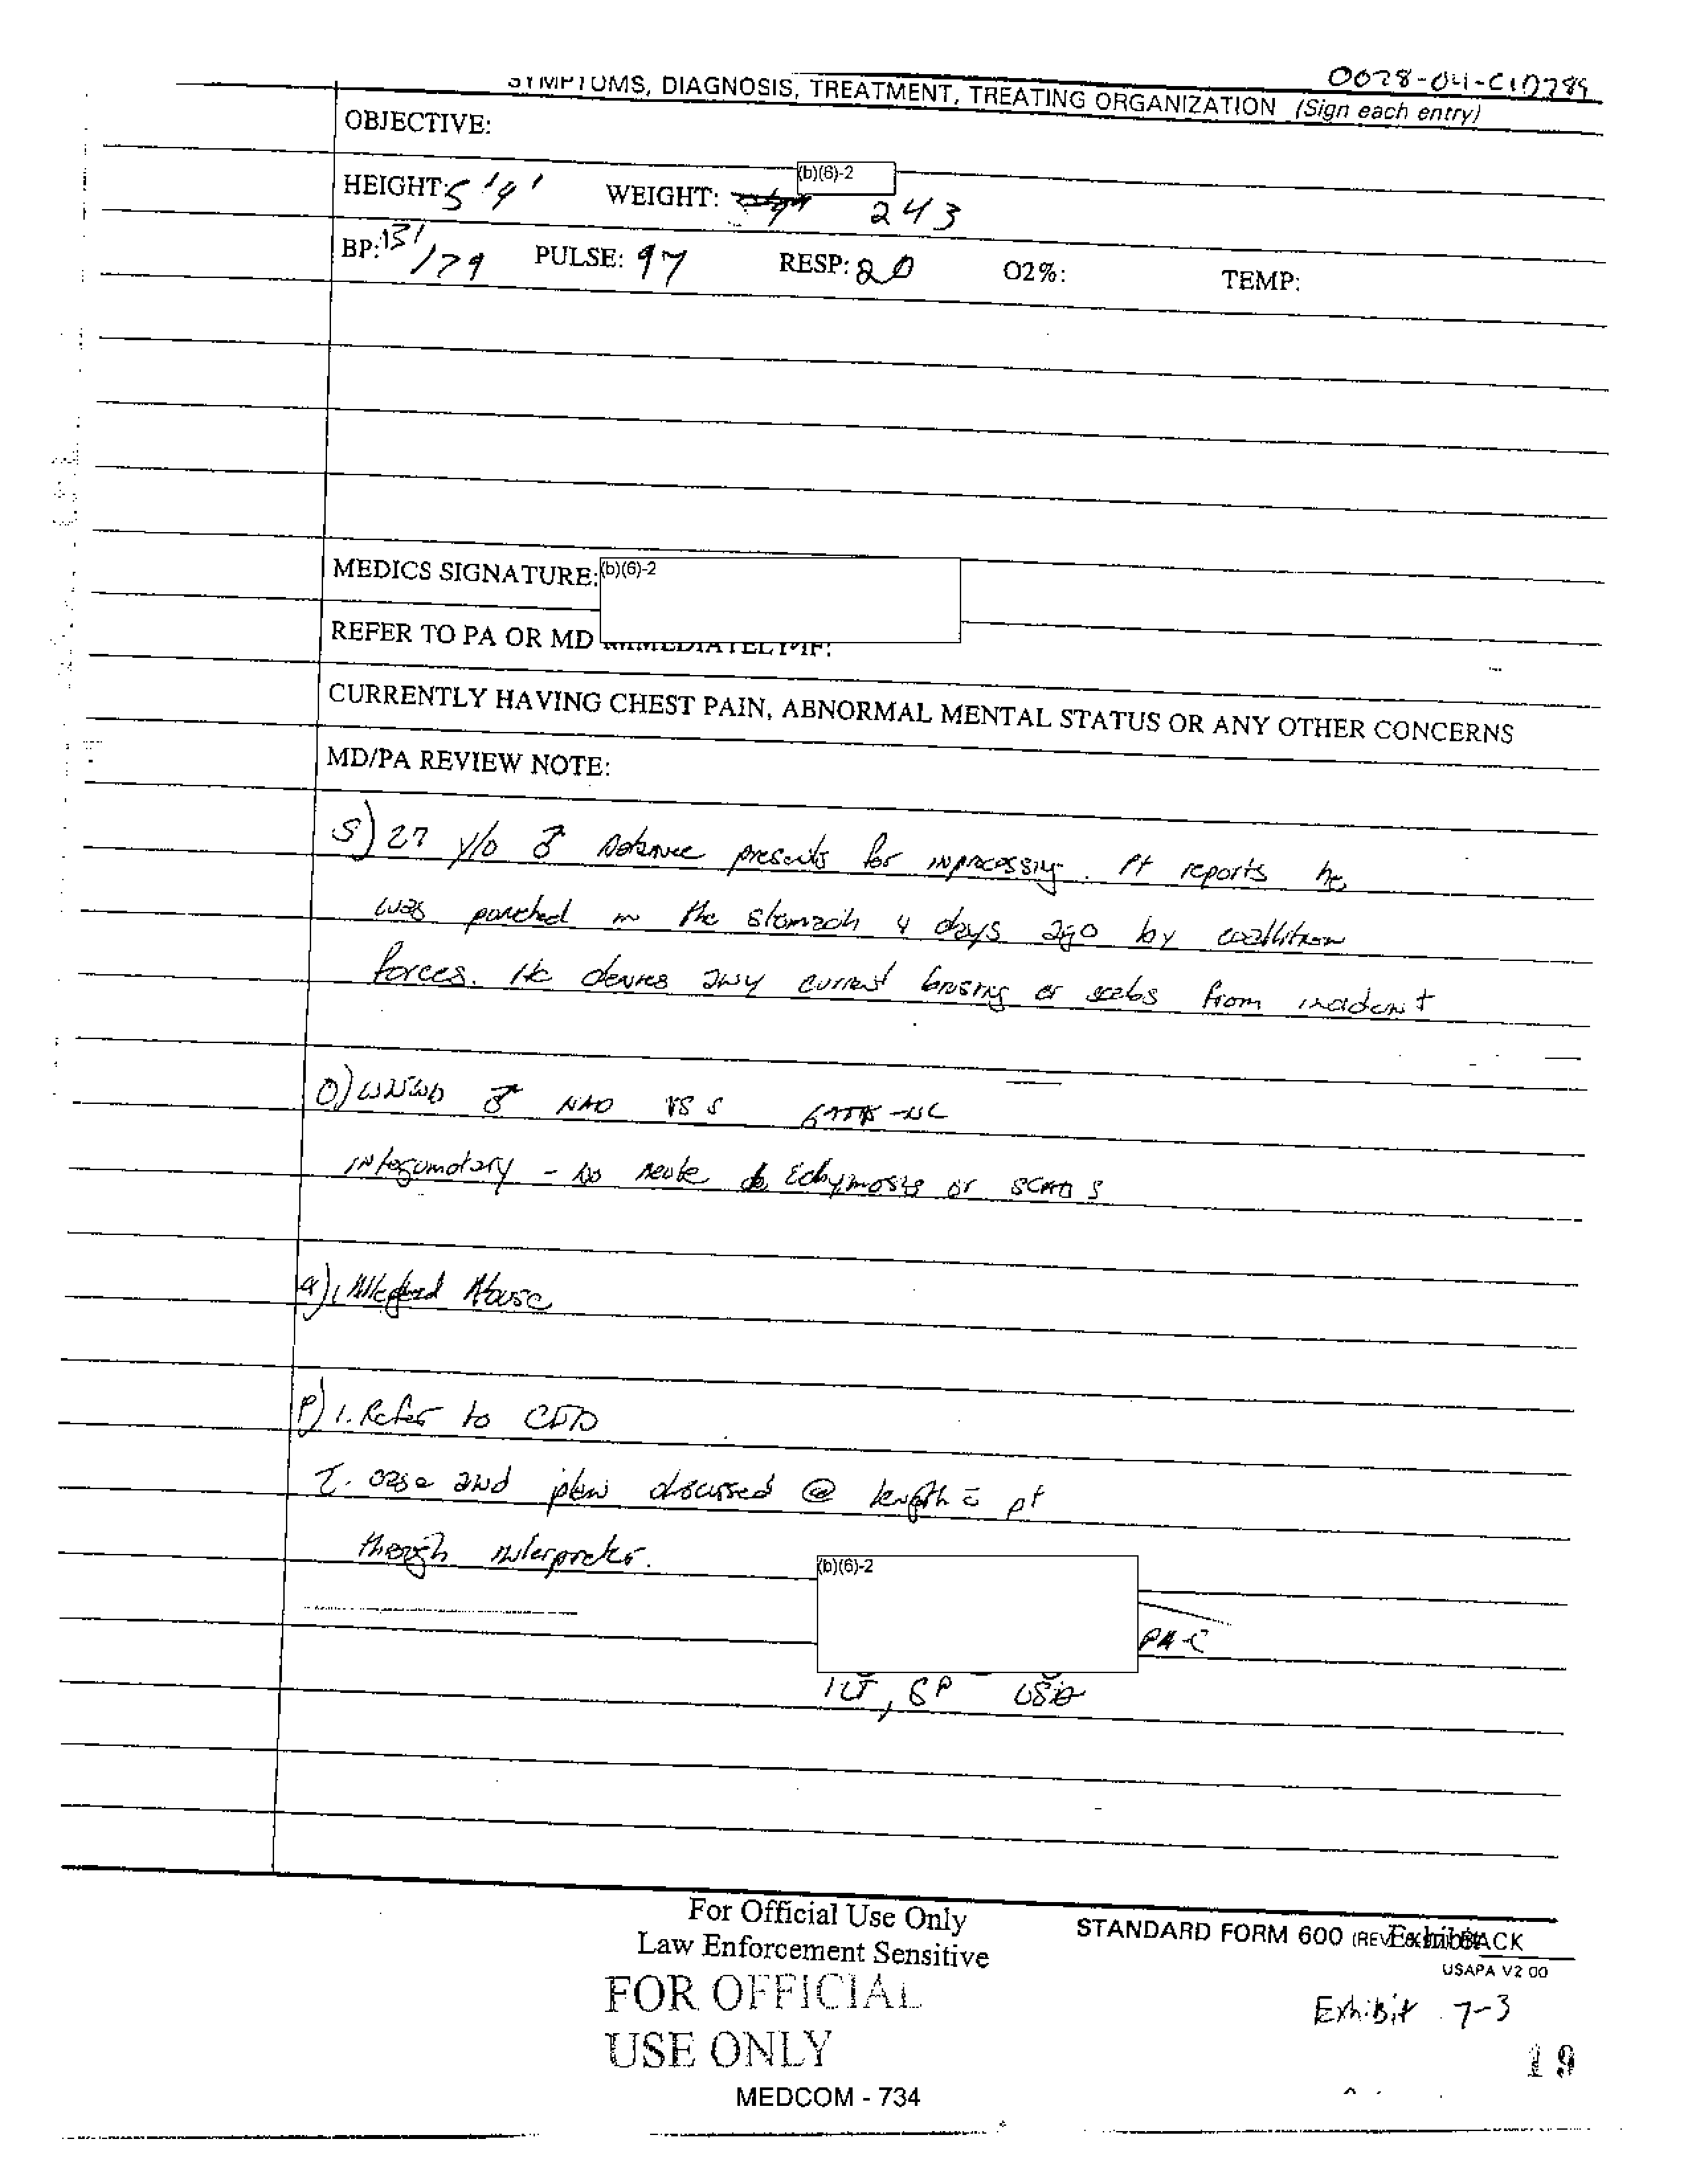 0028-04-CID789
SYMPTOMS, DIAGNOSIS, TREATMENT, TREATING ORGANIZATION (Sign each entry)
OBJECTIVE:
(b)(6)-2
HEIGHT: 5'9' WEIGHT: 243
BP: 131/79 PULSE: 97 RESP: 20 O2%: TEMP:
MEDICS SIGNATURE: (b)(6)-2
REFER TO PA OR MD IMMEDIATELY IF:
CURRENTLY HAVING CHEST PAIN, ABNORMAL MENTAL STATUS OR ANY OTHER CONCERNS
MD/PA REVIEW NOTE:
S) 27 y/o ♂ Detainee presents for inprocessing. Pt reports he
was punched in the stomach 4 days ago by coallition
forces. He denies any current brusing or scabs from incident
O) WNWD ♂ NAD VSS
Integumotary - No Acute Echymosis or SCABS
a) 1. Alleged Abuse
P) 1. Refer to CID
2. case and plan discussed @ length c̄ pt
through interpreter.
(b)(6)-2
PA-C
1LT, SP USA
For Official Use Only
Law Enforcement Sensitive
STANDARD FORM 600 BACK
Exhibit
USAPA V2 00
FOR OFFICIAL
USE ONLY
Exhibit 7-3
19
MEDCOM - 734